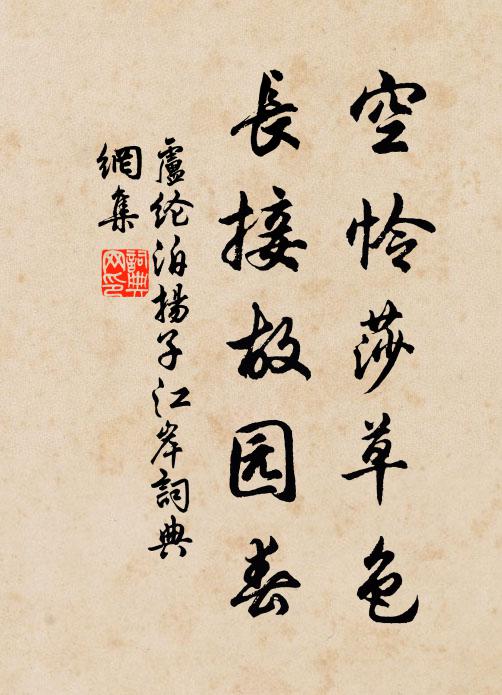 空怜莎草色
長接故园春
盧纶泊揚子江岸詞典
網集
詞典
网印